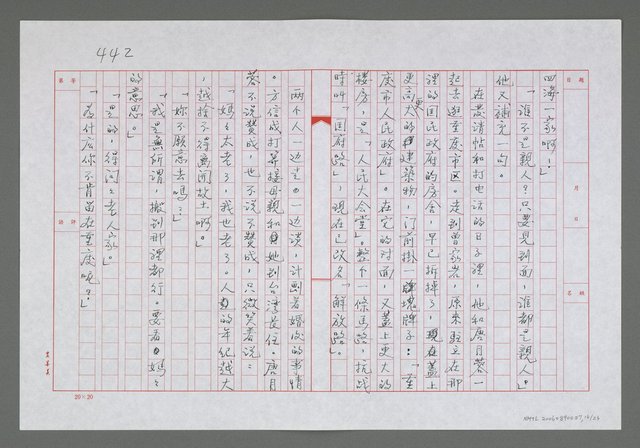 442
四海一家啊！」
「誰不是親人？只要見到面，誰都是親人。」
他又補充一句。
在發請帖和打電話的日子裡，他和唐月蓉一
起去逛重慶市區。走到曾家岩，原來駐在那
裡的國民政府的房舍，早已拆掉了，現在蓋上
更高更大的建築物，門前掛一塊牌子：「重
慶市人民政府」。在它的對面，又蓋上更大的
樓房，是「人民大會堂」。整個一條馬路，抗戰
時叫「國府路」，現在已改名「解放路」。
兩个人一边走，一边談，計劃着婚後的事情
。方信成打算接母親和她到台灣長住。唐月
蓉不說贊成，也不說不贊成，只微笑着說：
「媽媽太老了，我也老了。人的年紀越大
，越捨不得離開故土啊。」
「妳不願意去嗎？」
「我是無所謂，搬到那裡都行。要看媽媽
的意思。」
「是的，得問問老人家。」
「為什么你不肯留在重慶呢？」
題目
月
日
姓名
評語
等第
20×20